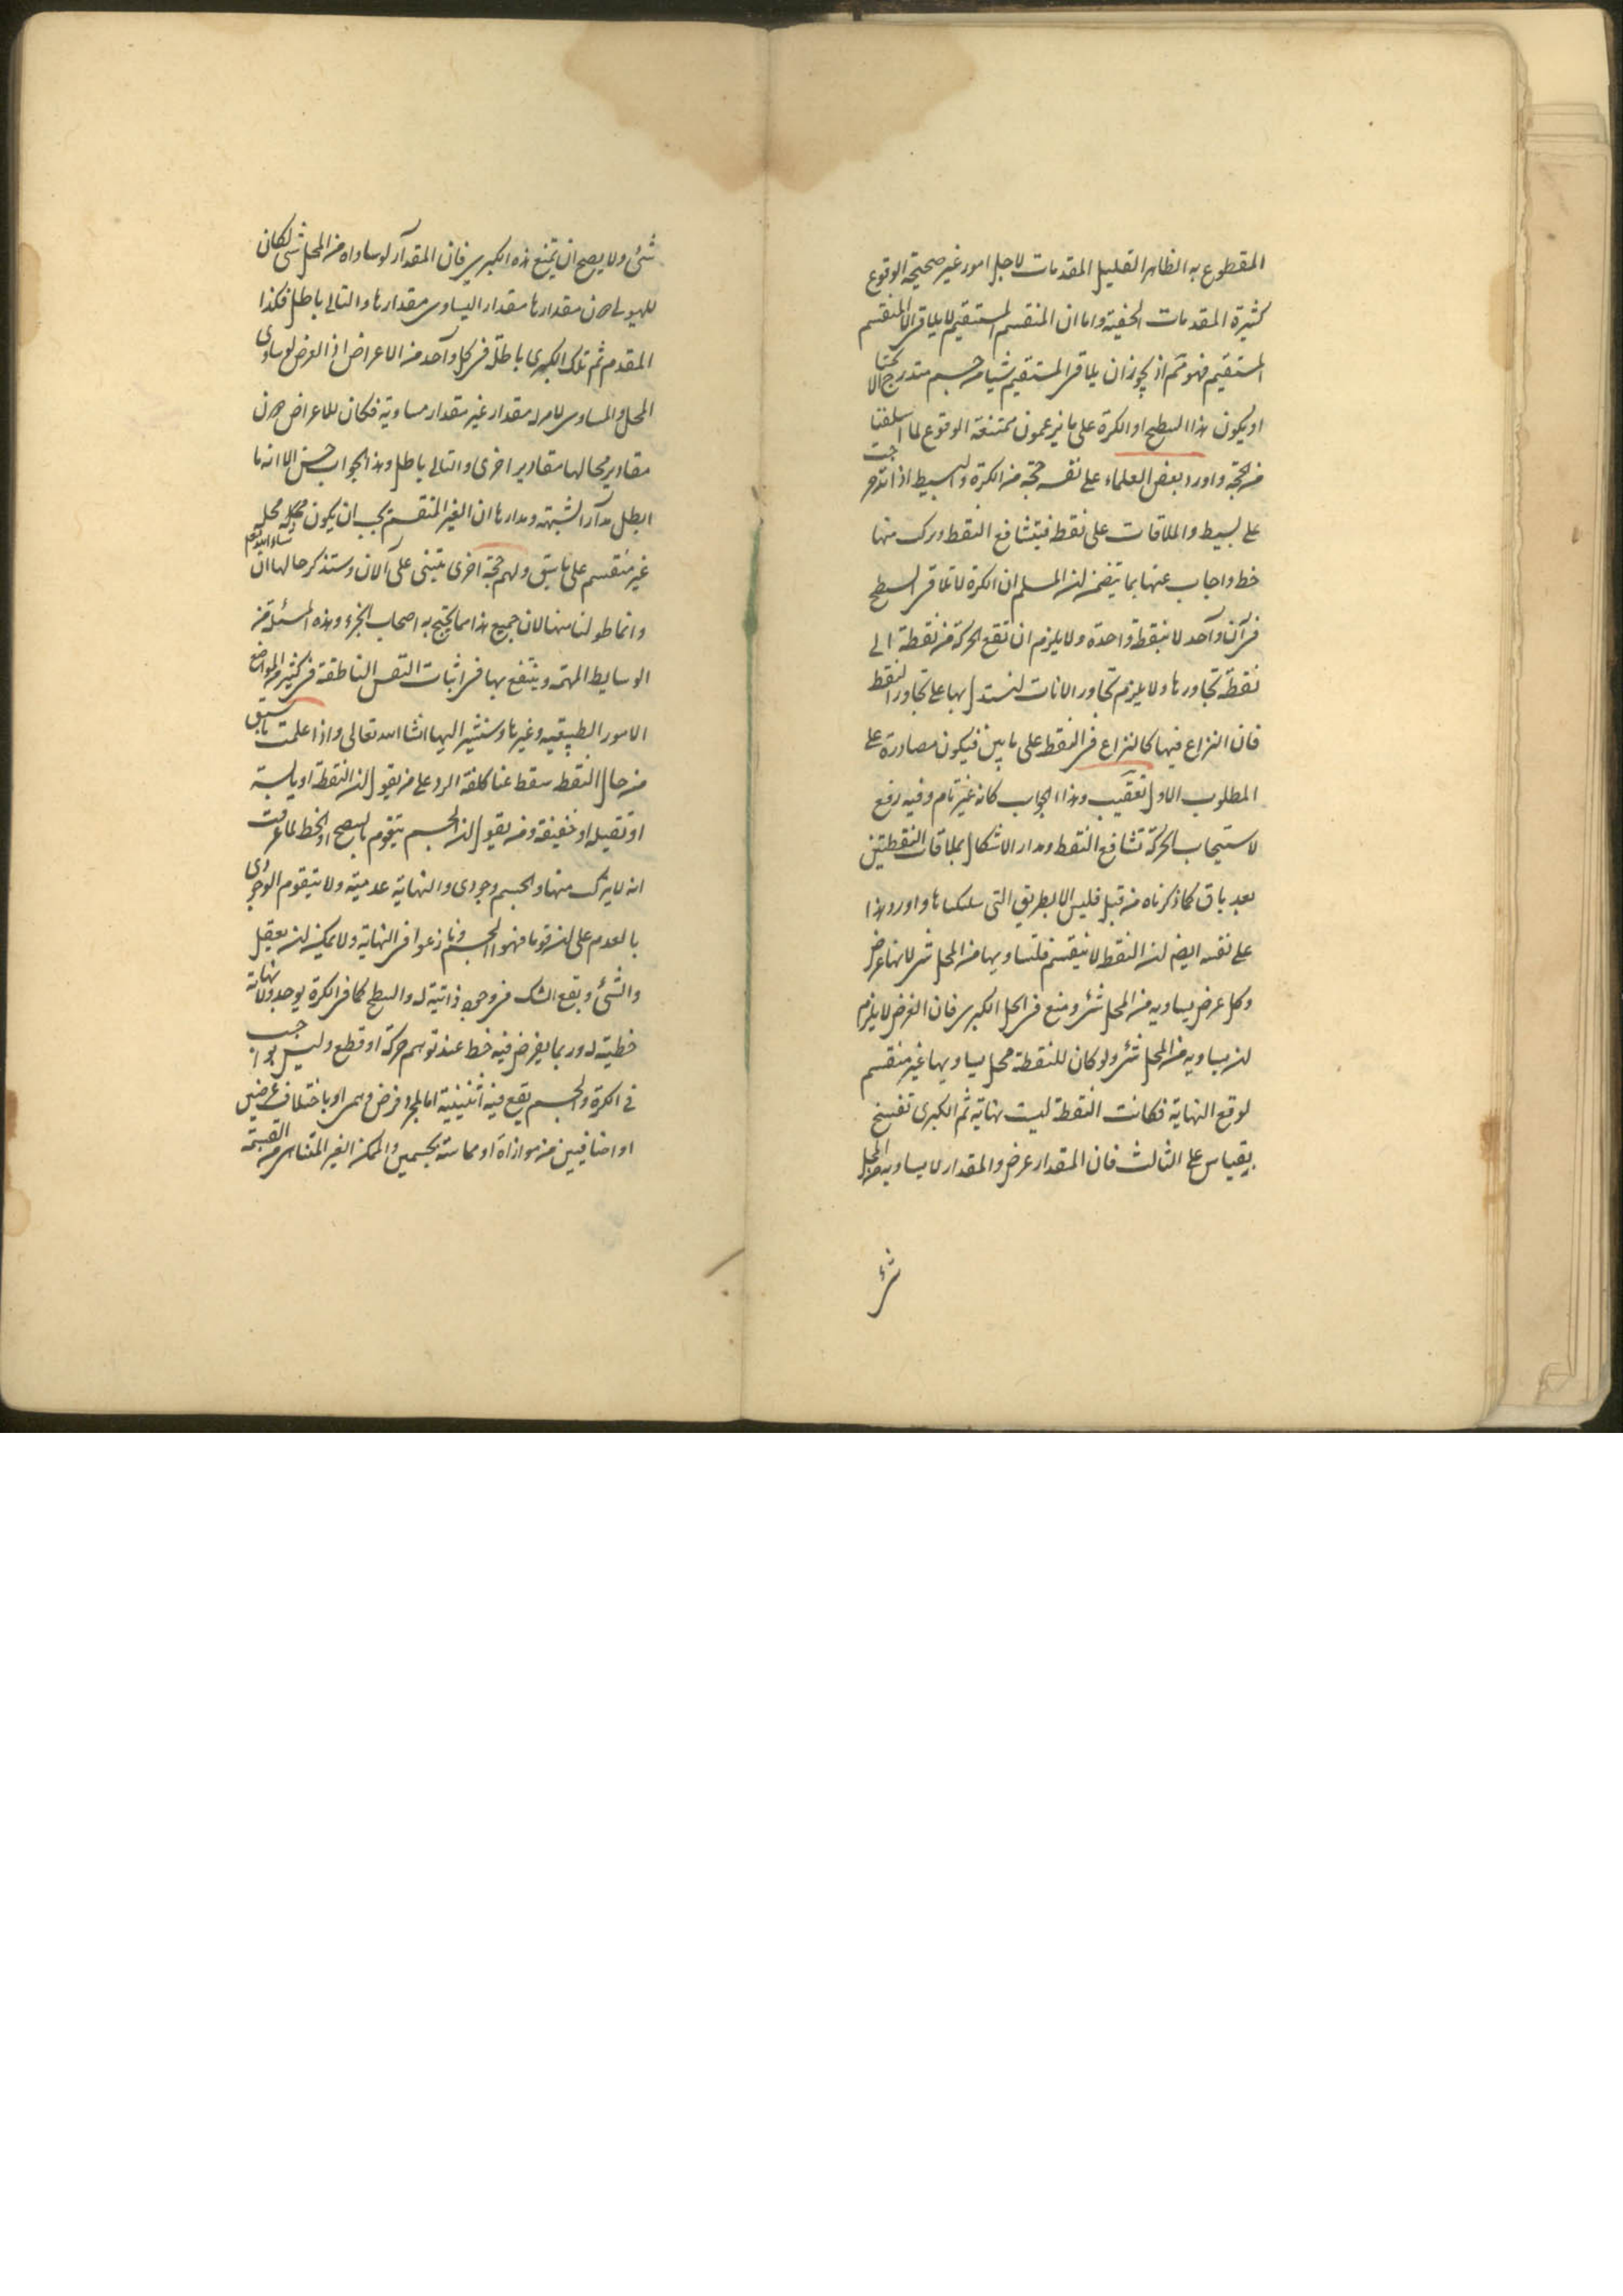 المقطوع به الظاهر القليل المقدمات لاجل امور غير صحيحة الوقوع
كثيرة المقدمات الخفية واما ان المنقسم المستقيم لا يلاقى الا المنقسم
المستقيم فهو ثم اذ يجوز ان يلاقى المستقيم شيا من جسم متدرج
او يكون هذا السطح او الكرة على ما يزعمون ممتنعة الوقوع لما اسلفنا
من الحجة واورد بعض العلماء على نفسه حجة من الكرة والبسيط اذا
على بسيط والملاقات على نقط فيتشافع النقط ورك منها
خط واجاب عنها بما يتضمن ان المسلم ان الكرة لا تلاقى السطح
فى آن واحد لا بنقطة واحدة ولا يلزم ان تقع الحركة من نقطة الى
نقطة تجاورها ولا يلزم تجاور الانات ليستدل بها على تجاور النقط
فان النزاع فيها كالنزاع فى النقط على ما بين فيكون مصادرة على
المطلوب الاول تعقيب وهذا الجواب كانه غير تام وفيه رفع
لاستيجاب الحركة تشافع النقط ومدار الاشكال بملاقات النقطتين
بعد باق كما ذكرناه من قبل فليس الا بطريق التى سلكناها واورد هذا
على نفسه ايضا ان النقط لا ينقسم فلتساويها من المحل شى لانها عرض
وكل عرض يساويه من المحل شى ومنع فى الحل الكبرى فان العرض لا يلزم
ان يساويه من المحل شى ولو كان للنقطة محل يساويها غير منقسم
لوقع النهاية فكانت النقطة ليست نهاية ثم الكبرى تفسخ
بقياس على الثالث فان المقدار عرض والمقدار لا يساويه من المحل
شى
شئ ولا يصح ان يمنع هذه الكبرى فان المقدار لو ساواه من المحل شى لكان
للهيولى دون مقدارها مقدار اليساوى مقدارها والتالى باطل فكذا
المقدم ثم تلك الكبرى باطلة فى كل واحد من الاعراض اذ العرض لو ساوى
المحل والمساوى للامر له مقدار غير مقدار مساويه فكان للاعراض دون
مقادير محالها مقادير اخرى والتالى باطل وهذا الجواب حسن الا انه ما
ابطل مدار الشبهة ومدارها ان الغير المنقسم يجب ان يكون محله محل
غير منقسم على ما سبق ولهم حجة اخرى يبتنى على الآن وستذكر حالها ان شاء الله تعالى
وانما طولنا ههنا لان جميع هذا مما يحتج به اصحاب الجزء وهذه المسئلة من
الوسايط المهمة وينتفع بها فى اثبات النفس الناطقة فى كثير من المواضع
الامور الطبيعية وغيرها وسنشير اليها انشا الله تعالى واذا علمت ما سبق
من حال النقط سقط عنا كلفة الرد على من يقول ان النقطة او يابسة
او ثقيلة او خفيفة ومن يقول ان الجسم يتقوم بالسطح او الخط لما عرفت
انه لا يتركب منها والجسم وجودى والنهاية عدمية ولا يتقوم الوجودى
بالعدم على ان قوما فهموا الجسم وما زعموا فى النهاية ولا يمكن ان يعقل
والشئ ويقع الشك فى وجود ذاتية له والسطح كما فى الكرة يوجد ولا نهاية
خطية له وربما يفرض فيه خط عند توهم حركة او قطع وليس بواجب
فى الكرة والجسم يقع فيه اثنينية اما بمجرد فرض وهمى او باختلاف عرضين
او اضافيين من موازاة او مماسة بجسمين والممكن الغير المتناهى من القسمة